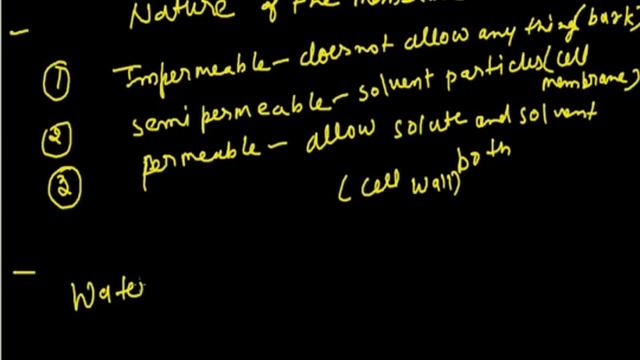 Nature of the membrane
① Impermeable - does not allow any thing (bark)
② semi permeable - solvent particles (cell membrane)
③ permeable - allow solute and solvent both
(cell wall)
Wate